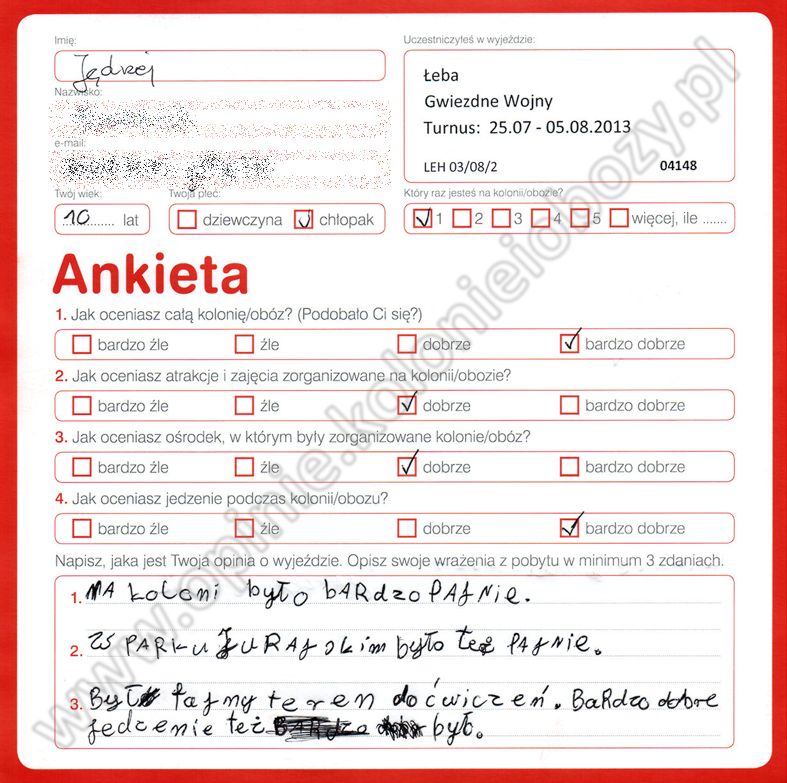 Imię:
Jędrzej
Uczestniczyłeś w wyjeździe:
Łeba
Gwiezdne Wojny
Turnus: 25.07 - 05.08.2013
LEH 03/08/2 04148
Nazwisko:
e-mail:
Twój wiek:
10 lat
Twoja płeć:
dziewczyna chłopak
Który raz jesteś na kolonii/obozie?
1 2 3 4 5 więcej, ile .......
Ankieta
1. Jak oceniasz całą kolonię/obóz? (Podobało Ci się?)
bardzo źle źle dobrze bardzo dobrze
2. Jak oceniasz atrakcje i zajęcia zorganizowane na kolonii/obozie?
bardzo źle źle dobrze bardzo dobrze
3. Jak oceniasz ośrodek, w którym były zorganizowane kolonie/obóz?
bardzo źle źle dobrze bardzo dobrze
4. Jak oceniasz jedzenie podczas kolonii/obozu?
bardzo źle źle dobrze bardzo dobrze
Napisz, jaka jest Twoja opinia o wyjeździe. Opisz swoje wrażenia z pobytu w minimum 3 zdaniach.
1. NA koloni było bARdzo FAJNie.
2. W PARku JURAjskim było też FAJNIE.
3. Był fajny teren do ćwiczeń. BaRdzo dobre
jedzenie też był.
www.opinie.kolonieiobozy.pl